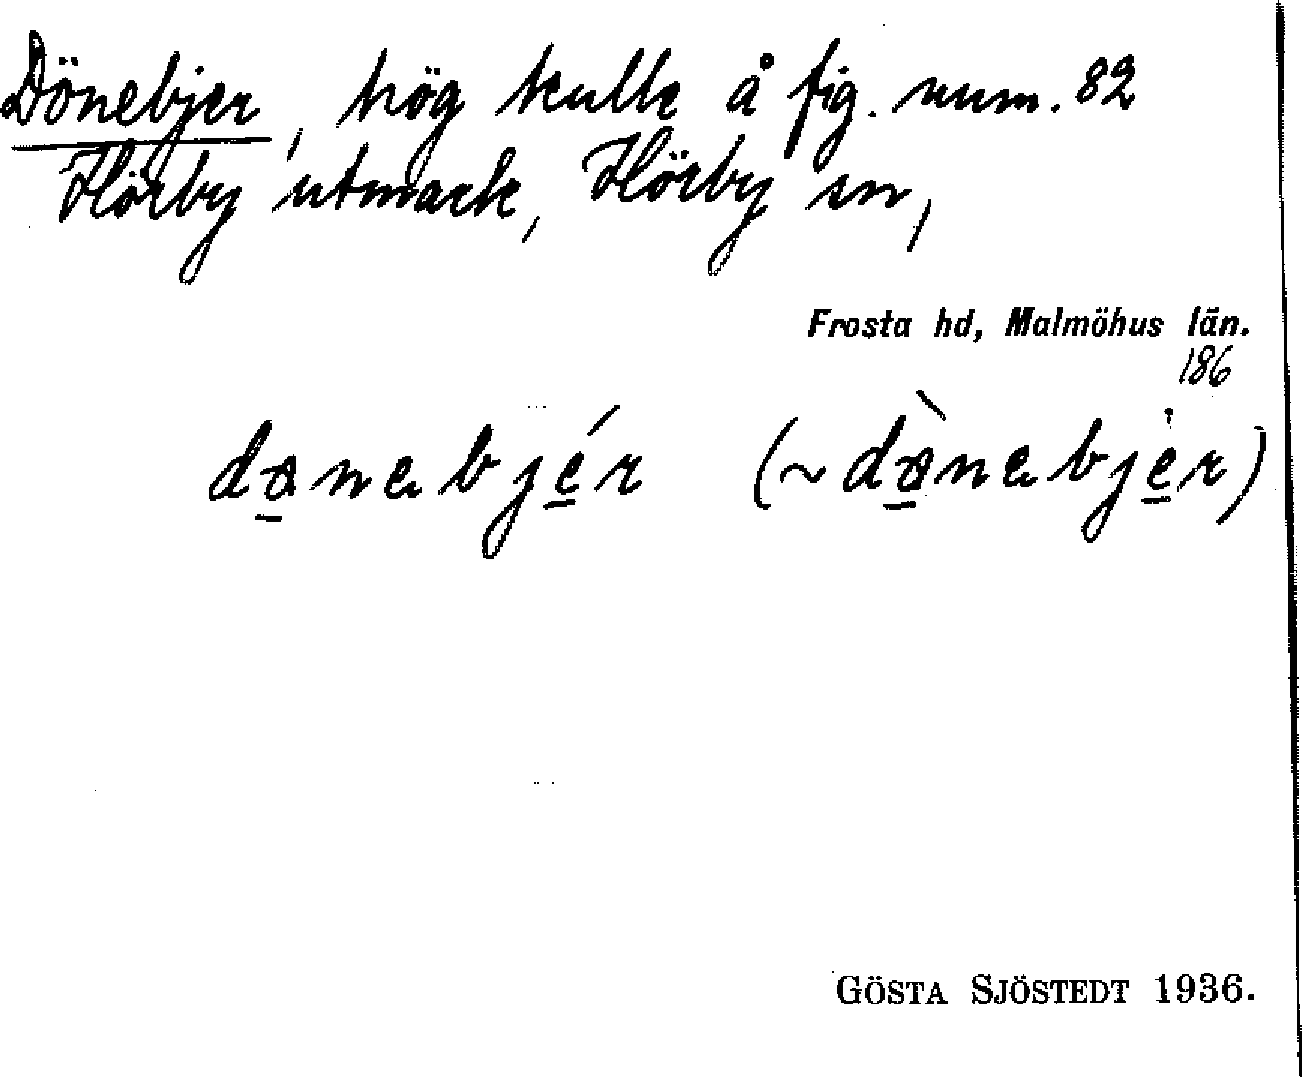 Dönebjer, hög kulle å fig. num. 82
Hörby utmark, Hörby sn,
Frosta hd, Malmöhus län.
186
dønebjér (~ dø̀nebjèr)
GÖSTA SJÖSTEDT 1936.